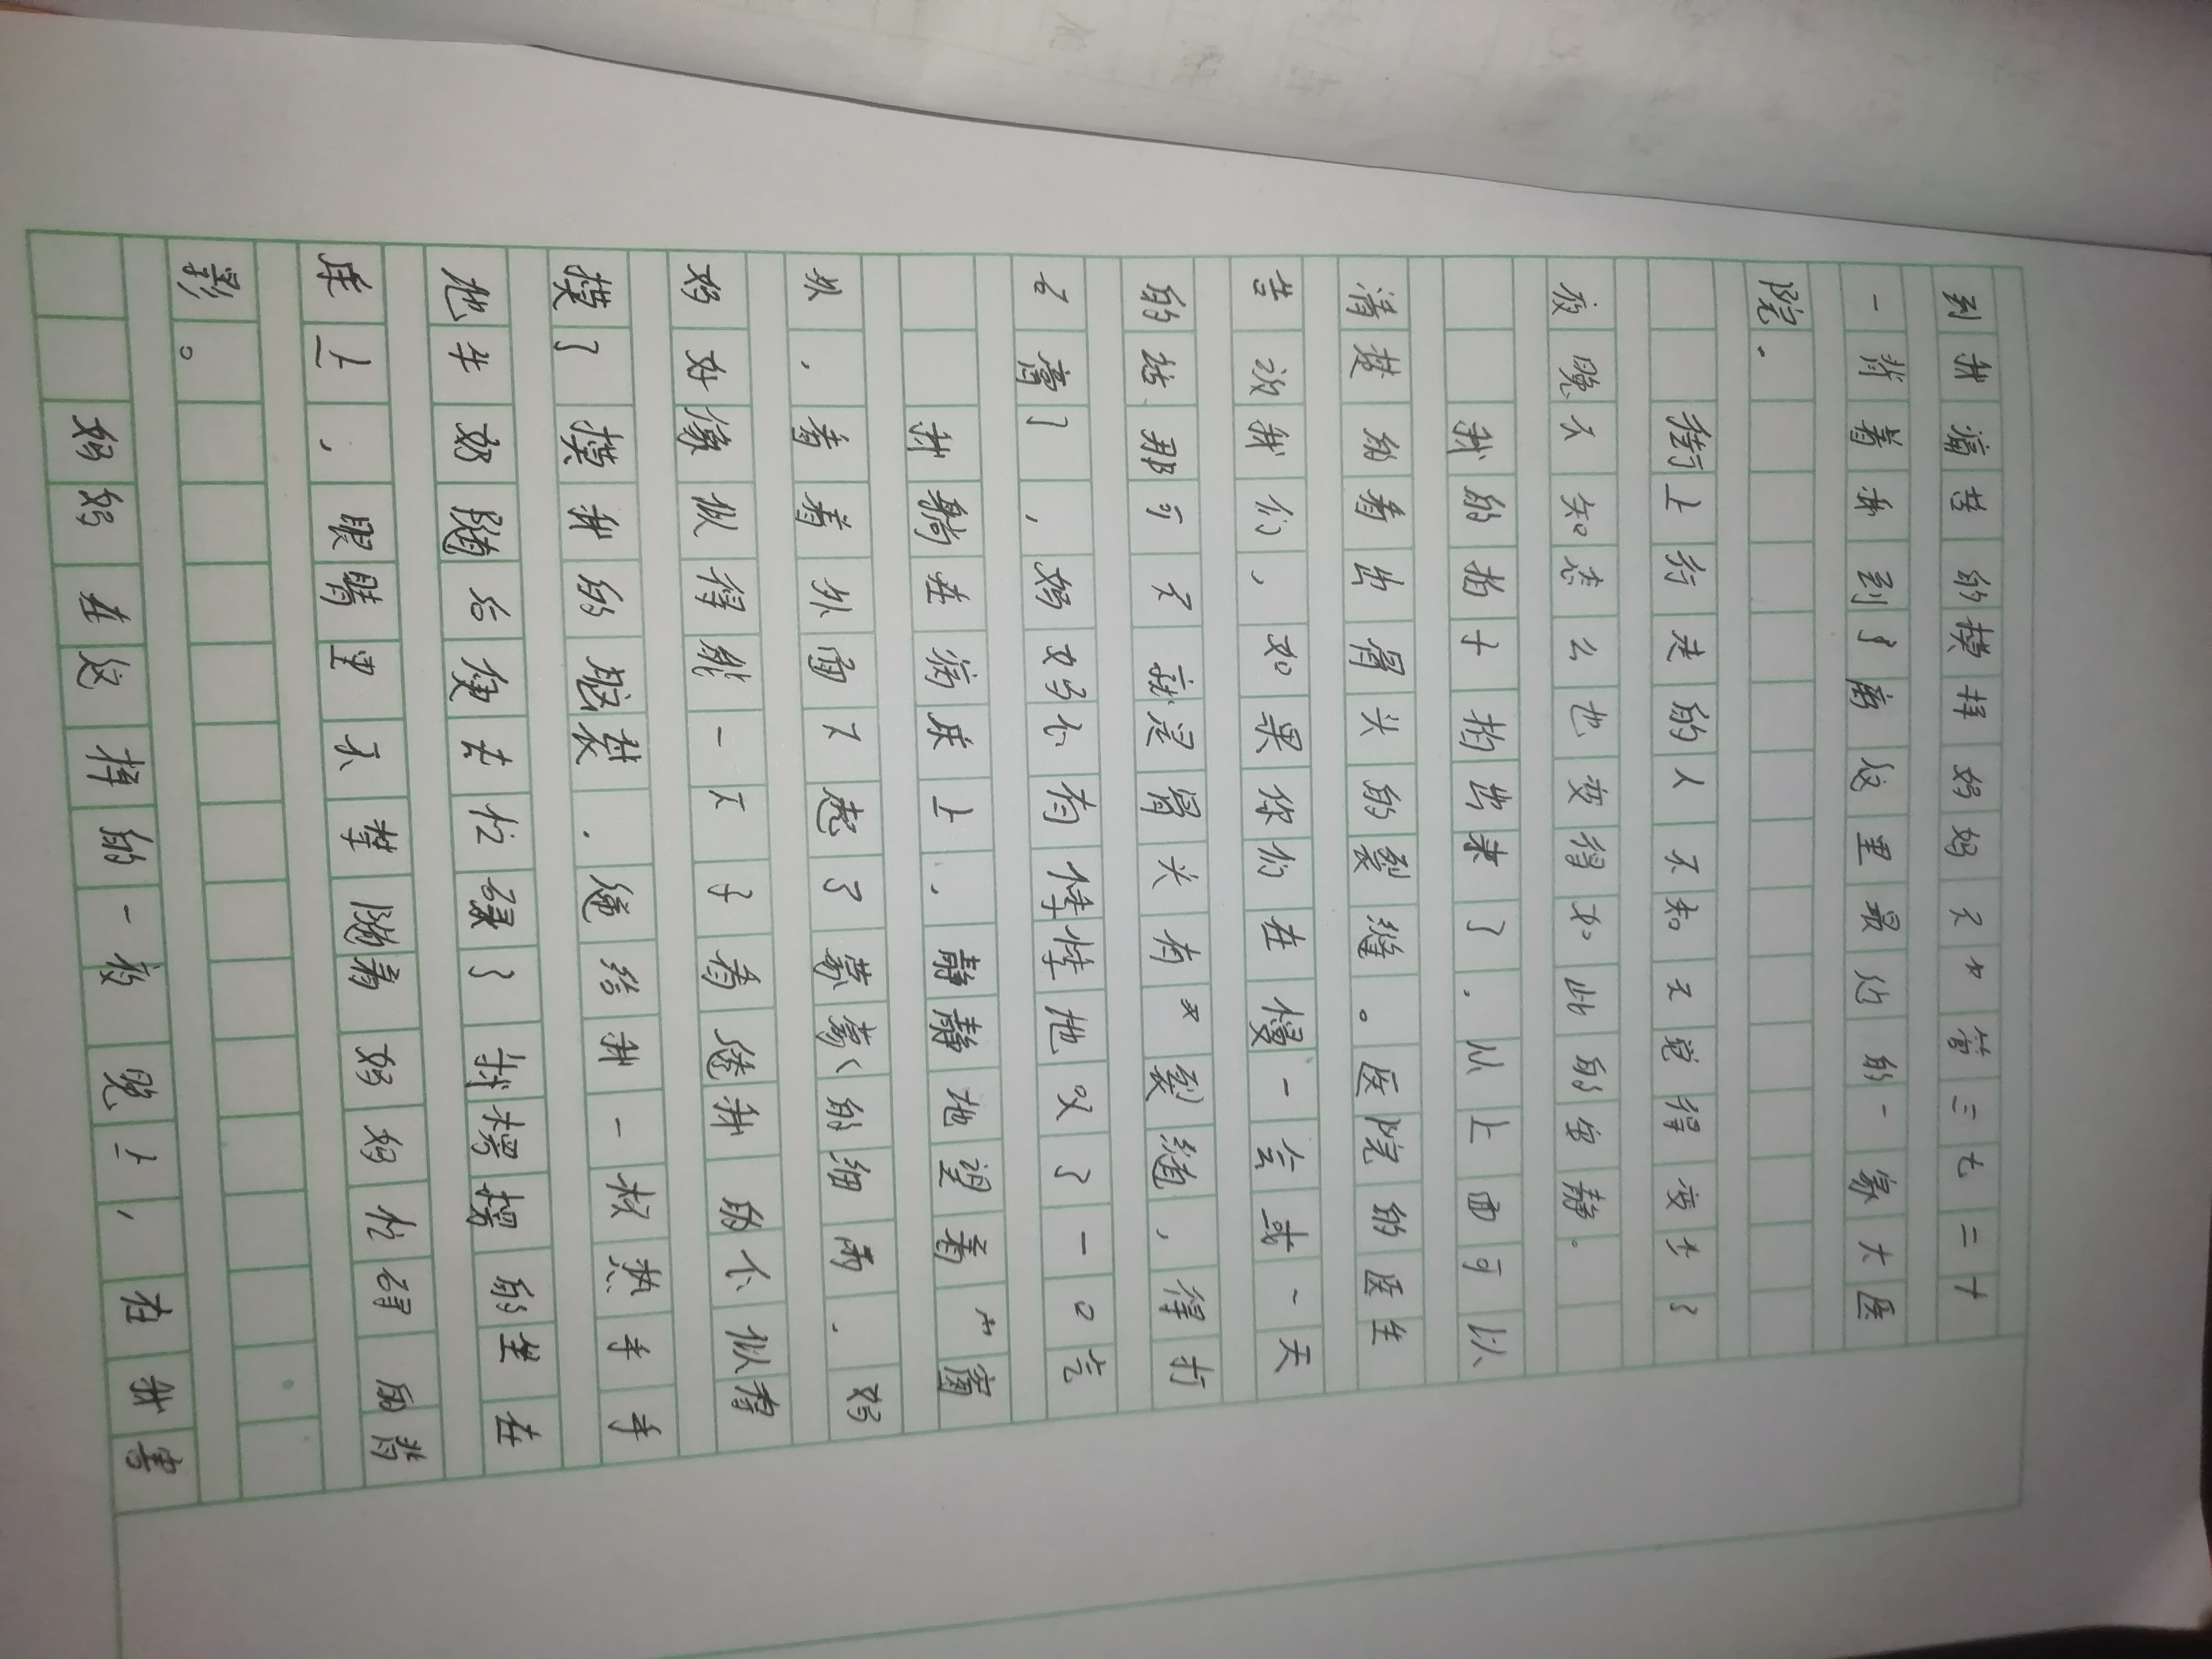 到我痛苦的模样妈妈不管三七二十
一背着我到了离这里最近的一家大医
院。
街上行走的人不知不觉得变少了
夜晚不知怎么也变得如此的安静。
我的拍片拍出来了.从上面可以
清楚的看出骨头的裂缝。医院的医生
告诉我们,如果你们在慢一会或一天
的话那可不就是骨头有裂缝,得打
石膏了,妈妈心有悸悸地叹了一口气
我躺在病床上、静静地望着窗
外.看着外面下起了蒙蒙的细雨.妈
妈好像似得能一下子看透我的心似得
摸了摸我的脑袋.递给我一杯热
他牛奶随后便去忙碌了静静的坐在
床上,眼睛里不禁随着妈妈忙碌的背
影。
妈妈在这样的一夜晚上,在我需